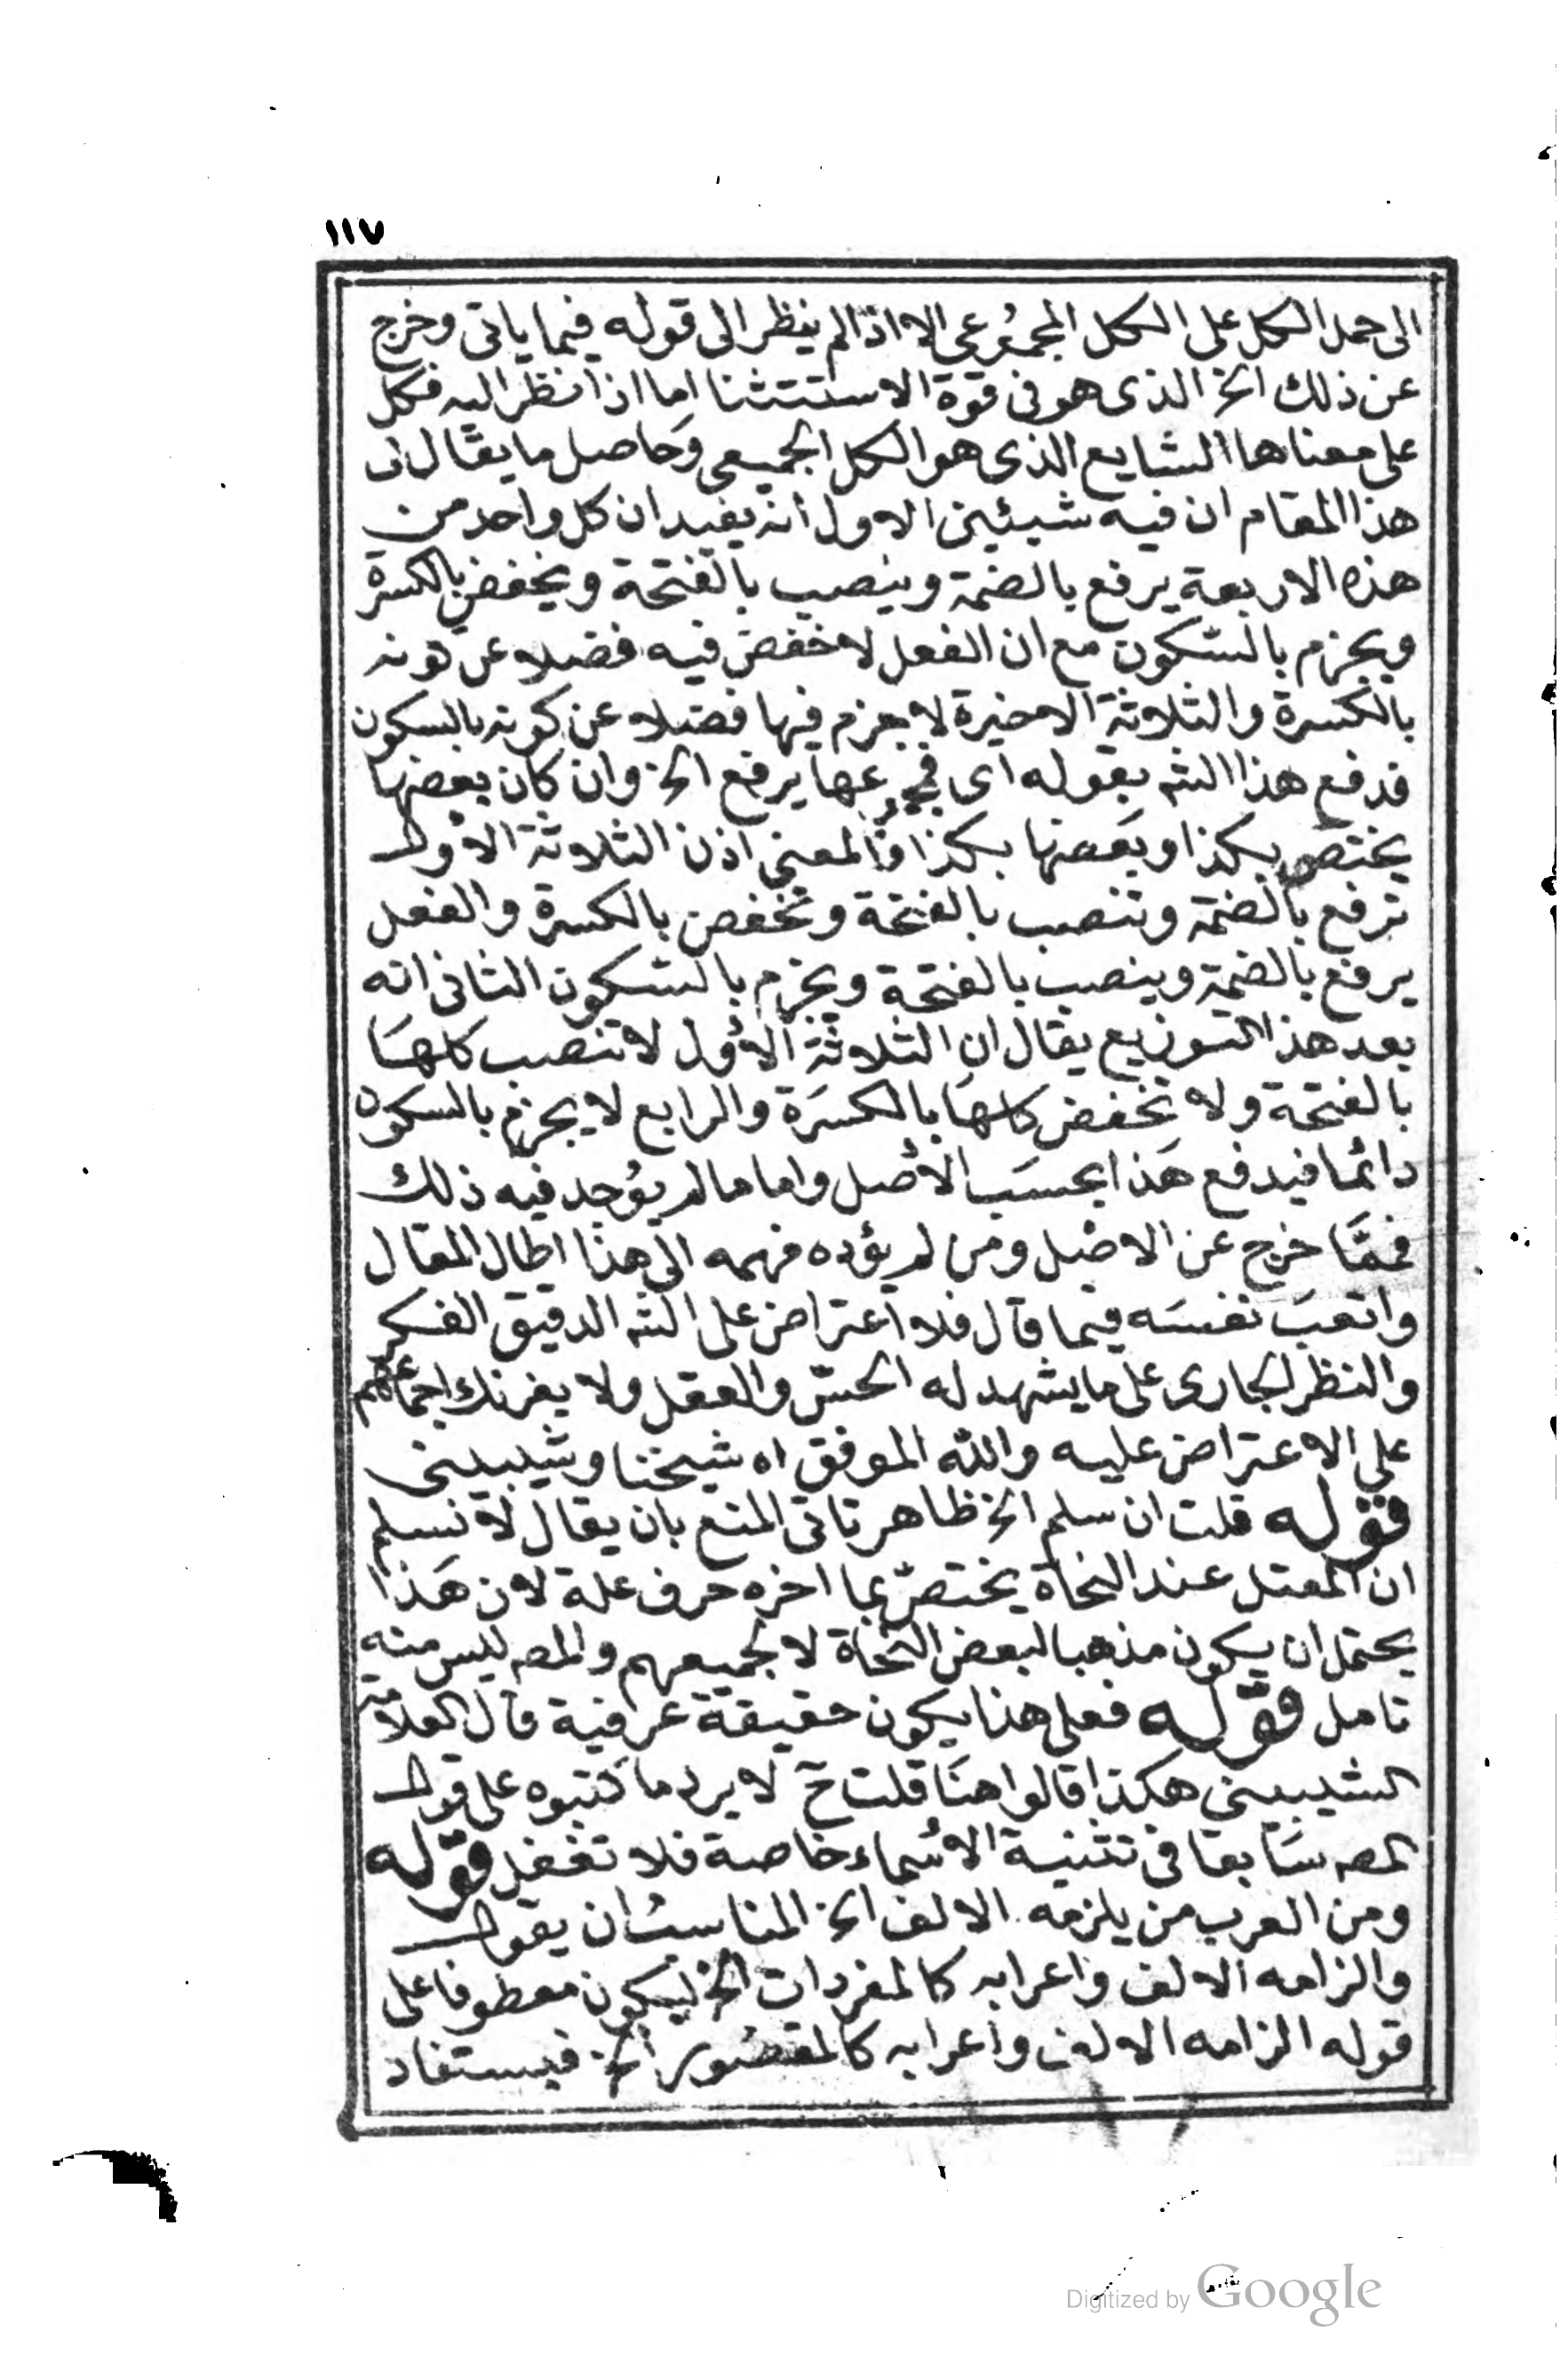 ١١٧
الى حمل الكل على الكل المجموعى الا اذا لم ينظر الى قوله فيما ياتى وخرج
عن ذلك الخ الذى هو فى قوة الاستثنا اما اذا نظر اليه فكل
على معناها الشايع الذى هو الكل الجميعى وحاصل ما يقال فى
هذا المقام ان فيه شيئين الاول انه يفيد ان كل واحد من
هذه الاربعة يرفع بالضمة وينصب بالفتحة ويخفض بالكسرة
ويجزم بالسكون مع ان الفعل لا خفض فيه فضلا عن كونه
بالكسرة والثلاثة الاخيرة لا جزم فيها فضلا عن كونه بالسكون
فدفع هذا الشه بقوله اى فمجموعها يرفع الخ وان كان بعضها
يختص بكذا وبعضها بكذا فالمعنى اذن الثلاثة الاول
ترفع بالضمة وتنصب بالفتحة وتخفض بالكسرة والفعل
يرفع بالضمة وينصب بالفتحة ويجزم بالسكون الثانى انه
بعد هذا التوزيع يقال ان الثلاثة الأول لا تنصب كلها
بالفتحة ولا تخفض كلها بالكسرة والرابع لا يجزم بالسكون
دائما فيدفع هذا بحسب الأصل واما ما لم يوجد فيه ذلك
فمما خرج عن الاصل ومن لم يؤده فهمه الى هذا اطال المقال
واتعب نفسه فيما قال فلا اعتراض على الشه الدقيق الفكر
والنظر الجارى على ما يشهد له الحس والعقل ولا يغرنك اجماعهم
على الاعتراض عليه والله الموفق اه شيخنا وشيبينى
قوله قلت ان سلم الخ ظاهر تاتى المنع بان يقال لا نسلم
ان المعتل عند النحاة يختص بما اخره حرف علة لان هذا
يحتمل ان يكون مذهبا لبعض النحاة لا لجميعهم والمصه ليس منه
تامل قوله فعلى هذا يكون حقيقة عرفية قال العلامة
الشيبينى هكذا قالوا هنا قلت ح لا يرد ما كتبوه على قول
المصه سابقا فى تثنية الأسماء خاصة فلا تغفل قوله
ومن العرب من يلزمه الالف الخ المناسب ان يقول
والزامه الالف واعرابه كالمفردات الخ ليكون معطوفا على
قوله الزامه الالف واعرابه كالمقصور الخ فيستفاد
Digitized by Google